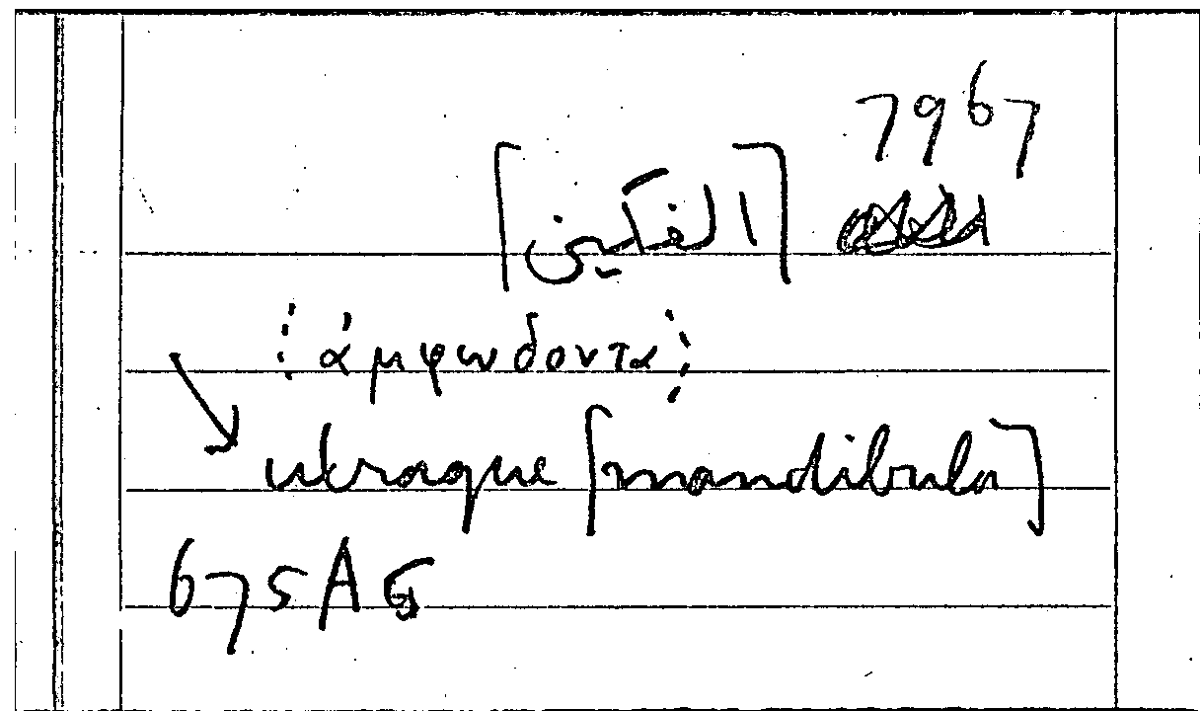 7967
[الفكين]
ἀμφώδοντα
utraque [mandibula]
675A5